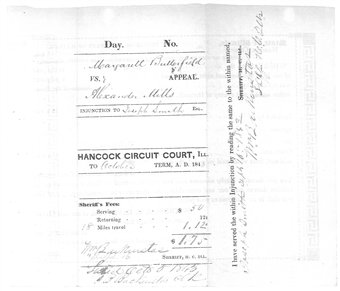 Day. No.
Margarett Butterfield
VS. } APPEAL.
Alexander Mills
INJUNCTION TO Joseph Smith Esq.
HANCOCK CIRCUIT COURT, ILL.
TO October TERM, A. D. 184
Sheriff's Fees:
Serving $ 50
Returning 12½
18 Miles travel 1.12
$ 1.75
SHERIFF, H. C. ILL.
I have served the within Injunction by reading the same to the within named,
Joseph Smith
SHERIFF, H. C. ILL.